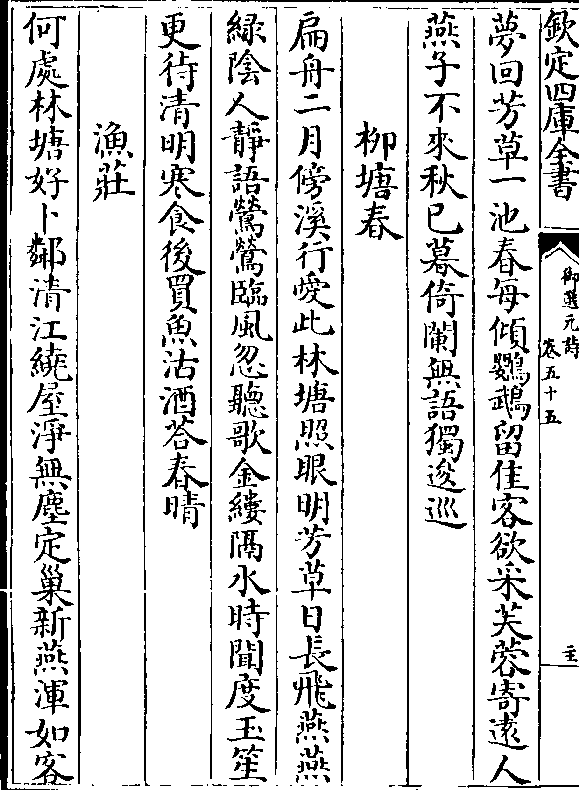 欽定四庫全書
御選元詩
卷五十五
夢回芳草一池春每傾鸚鵡留佳客欲采芙蓉寄遠人
燕子不來秋已暮倚闌無語獨逡巡
柳塘春
扁舟二月傍溪行愛此林塘照眼明芳草日長飛燕燕
緑陰人靜語鶯鶯臨風忽聽歌金縷隔水時聞度玉笙
更待清明寒食後買魚沽酒荅春晴
漁莊
何處林塘好卜鄰清江繞屋淨無塵定巢新燕渾如客